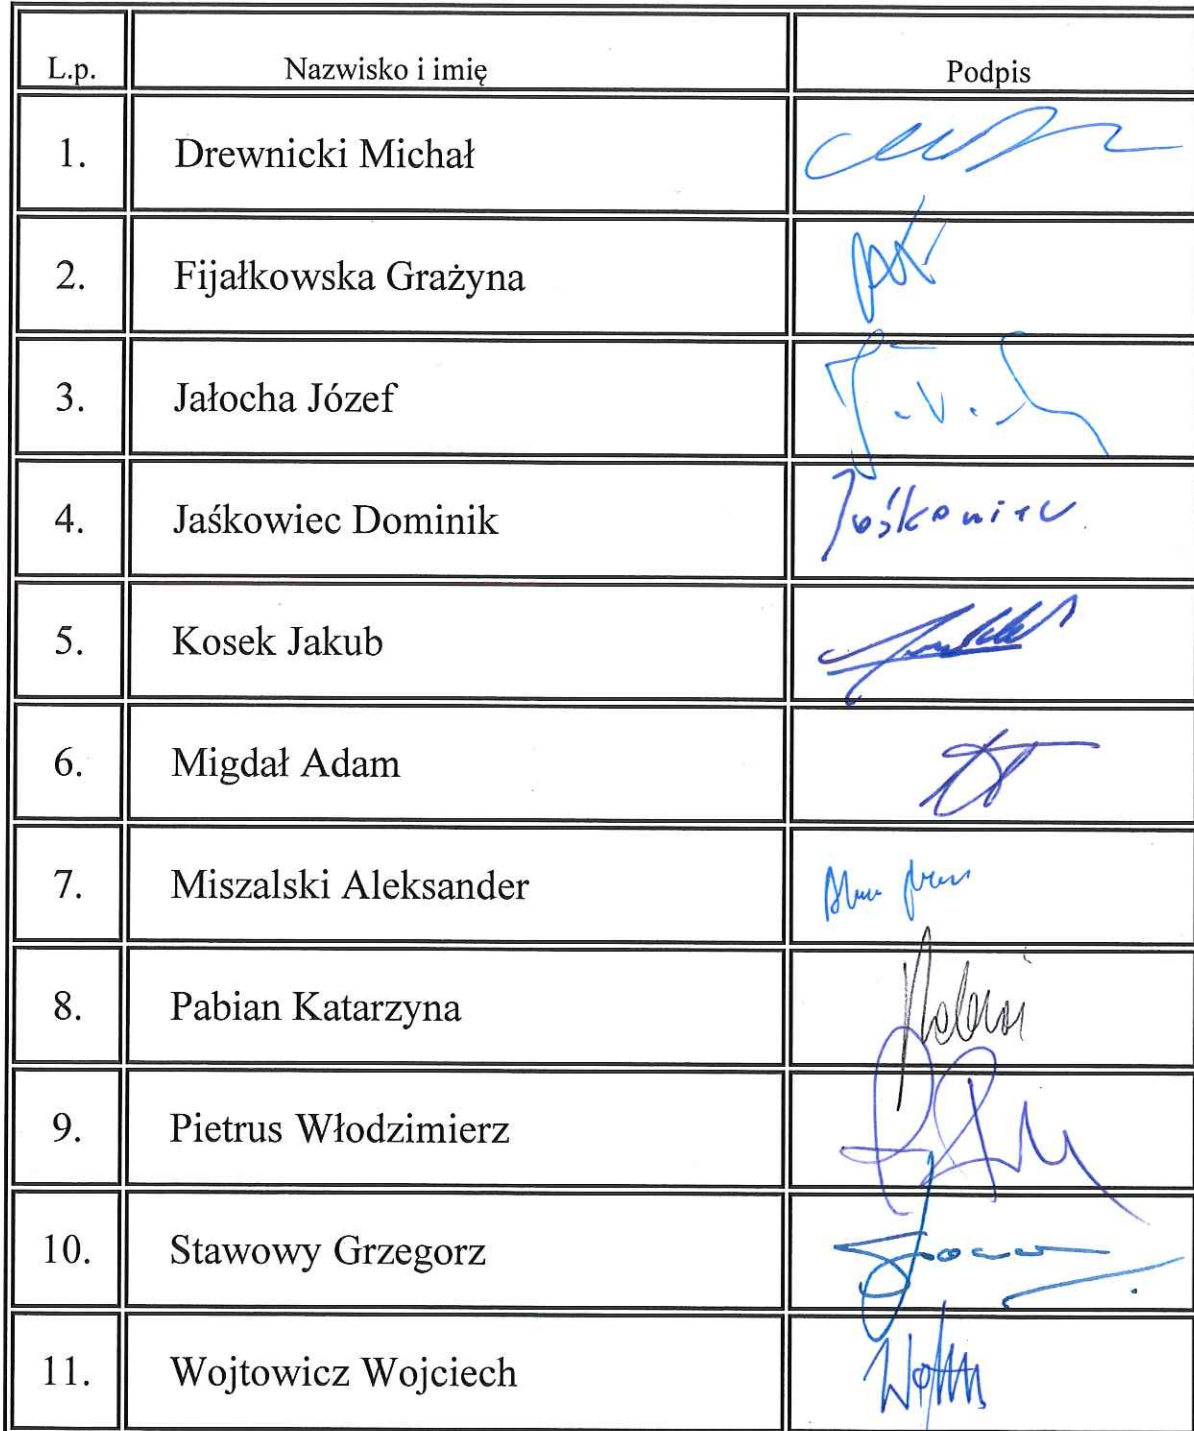 L.p. Nazwisko i imię Podpis
1. Drewnicki Michał
2. Fijałkowska Grażyna
3. Jałocha Józef
4. Jaśkowiec Dominik Jaśkowiec
5. Kosek Jakub
6. Migdał Adam
7. Miszalski Aleksander
8. Pabian Katarzyna
9. Pietrus Włodzimierz
10. Stawowy Grzegorz
11. Wojtowicz Wojciech